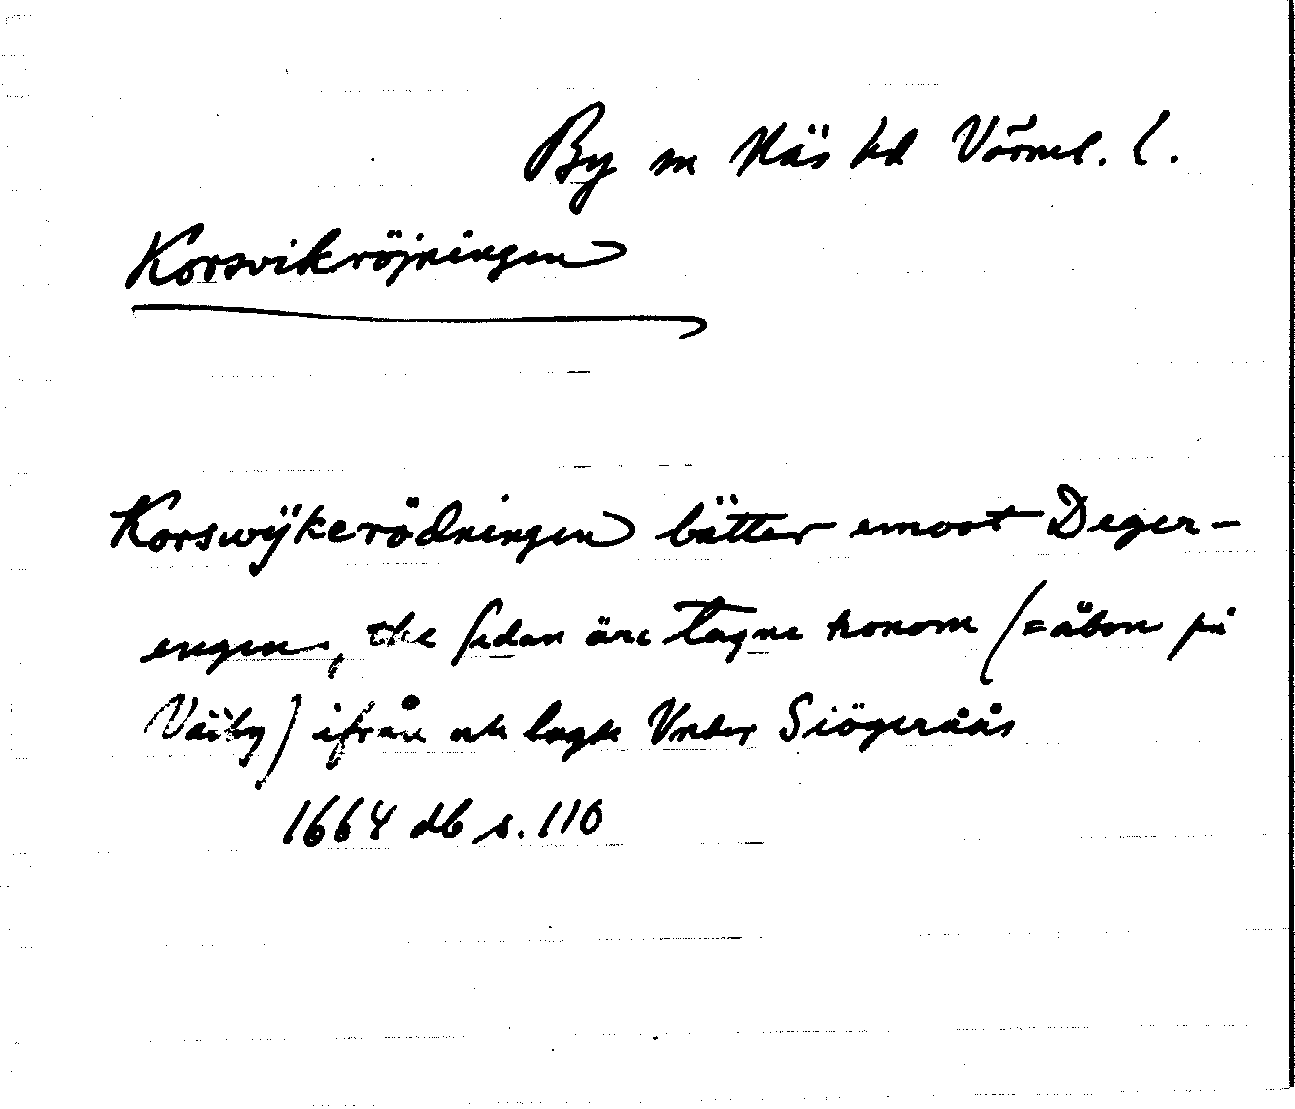 By sn Näs hd Värml. l.
Korsvikröjningen
Korswÿkerödningen bätter emoot Deger-
engen, the sedan äre tagne honom (=åbon på
Väsby) ifrån och lagde Vnder Siögeråås
1664 db s. 110